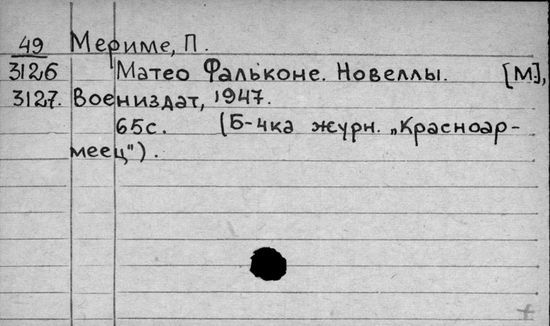 49 Мериме, П.
3126 Матео Фальконе. Новеллы. [М.],
3127. Воениздат, 1947.
65с. (Б-чка журн. „Красноар-
меец").